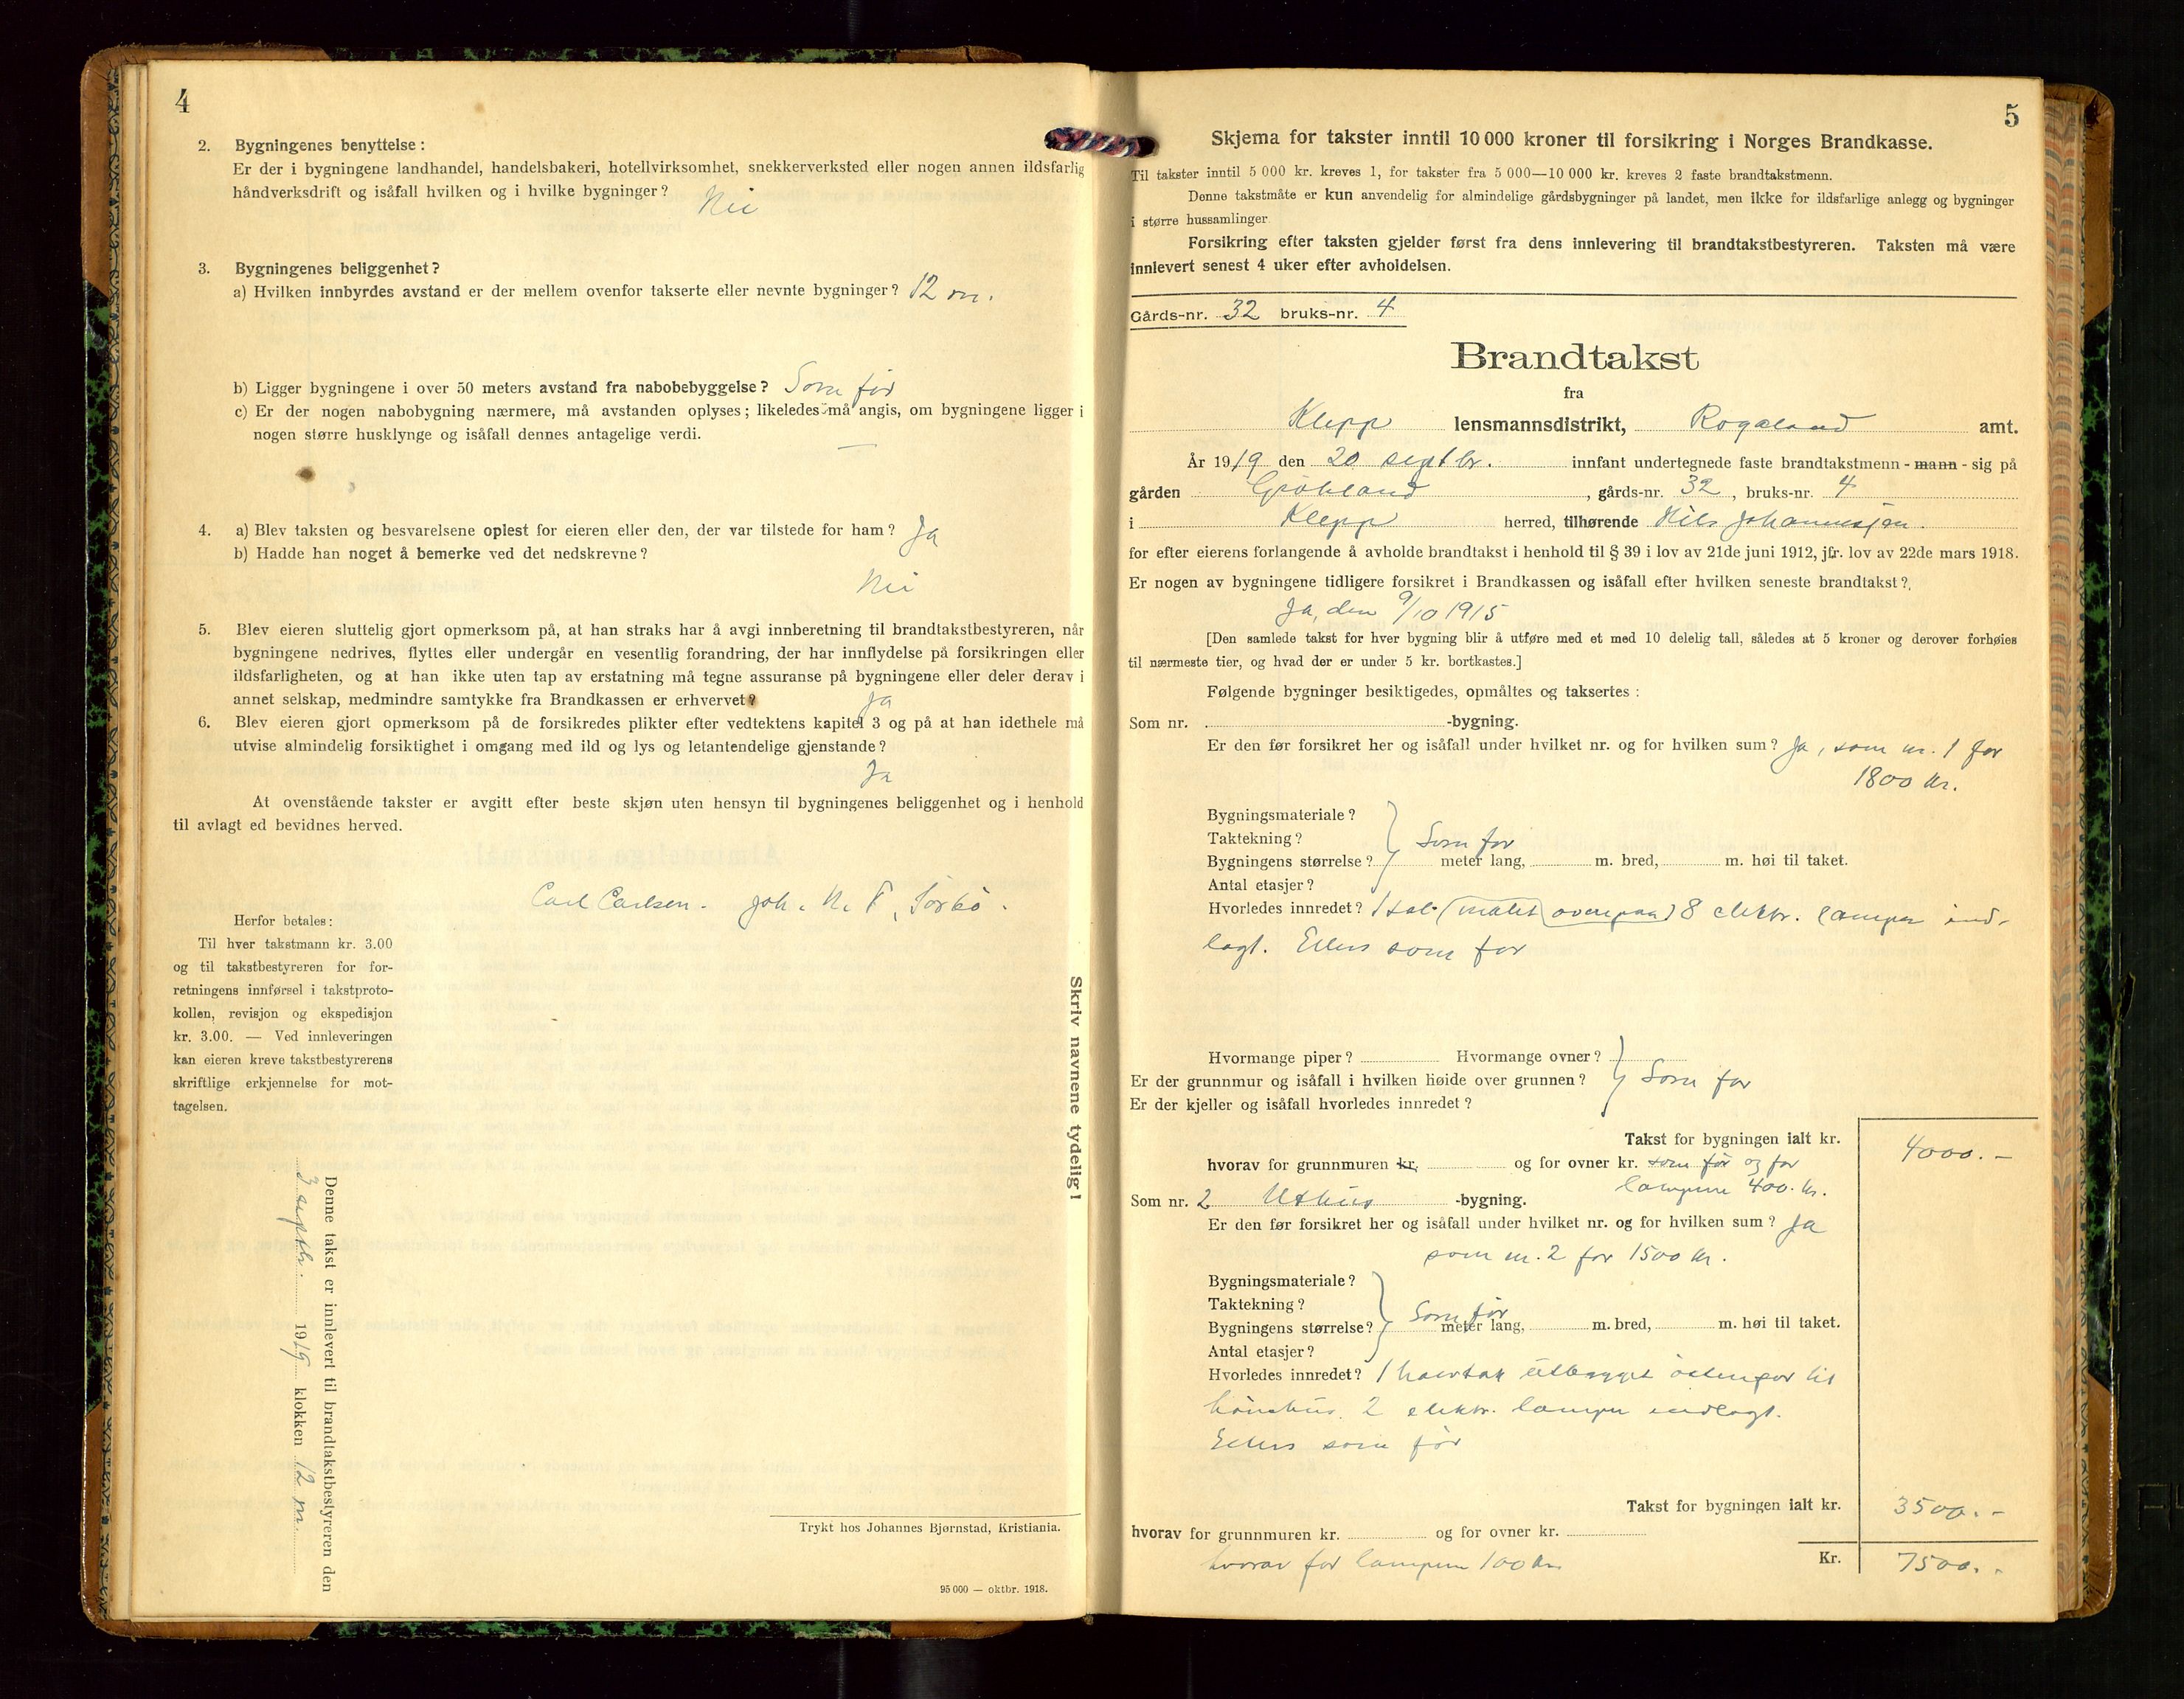 4
2. Bygningenes benyttelse:
Er der i bygningene landhandel, handelsbakeri, hotellvirksomhet, snekkerverksted eller nogen annen ildsfarlig
håndverksdrift og isåfall hvilken og i hvilke bygninger? Nei
3. Bygningenes beliggenhet?
a) Hvilken innbyrdes avstand er der mellem ovenfor takserte eller nevnte bygninger? 12 m.
b) Ligger bygningene i over 50 meters avstand fra nabobebyggelse? Som før
c) Er der nogen nabobygning nærmere, må avstanden oplyses; likeledes må angis, om bygningene ligger i
nogen større husklynge og isåfall dennes antagelige verdi. —
4. a) Blev taksten og besvarelsene oplest for eieren eller den, der var tilstede for ham? Ja
b) Hadde han noget å bemerke ved det nedskrevne?
Nei
5. Blev eieren sluttelig gjort opmerksom på, at han straks har å avgi innberetning til brandtakstbestyreren, når
bygningene nedrives, flyttes eller undergår en vesentlig forandring, der har innflydelse på forsikringen eller
ildsfarligheten, og at han ikke uten tap av erstatning må tegne assuranse på bygningene eller deler derav i
annet selskap, medmindre samtykke fra Brandkassen er erhvervet? Ja
6. Blev eieren gjort opmerksom på de forsikredes plikter efter vedtektens kapitel 3 og på at han idethele må
utvise almindelig forsiktighet i omgang med ild og lys og letantendelige gjenstande?
Ja
At ovenstående takster er avgitt efter beste skjøn uten hensyn til bygningenes beliggenhet og i henhold
til avlagt ed bevidnes herved.
Carl Carlsen. Joh. N. T. Sørbø.
Herfor betales:
Til hver takstmann kr. 3.00
og til takstbestyreren for for-
retningens innførsel i takstproto-
kollen, revisjon og ekspedisjon
kr. 3.00. — Ved innleveringen
kan eieren kreve takstbestyrerens
skriftlige erkjennelse for mot-
tagelsen.
Denne takst er innlevert til brandtakstbestyreren den
3 septbr. 1919 klokken 12 m.
Skriv navnene tydelig!
Trykt hos Johannes Bjørnstad, Kristiania.
95 000 — oktbr. 1918.
5
Skjema for takster inntil 10 000 kroner til forsikring i Norges Brandkasse.
Til takster inntil 5 000 kr. kreves 1, for takster fra 5 000—10 000 kr. kreves 2 faste brandtakstmenn.
Denne takstmåte er kun anvendelig for almindelige gårdsbygninger på landet, men ikke for ildsfarlige anlegg og bygninger
i større hussamlinger.
Forsikring efter taksten gjelder først fra dens innlevering til brandtakstbestyreren. Taksten må være
innlevert senest 4 uker efter avholdelsen.
Gårds-nr. 32 bruks-nr. 4
Brandtakst
fra
Klepp lensmannsdistrikt, Rogaland amt.
År 1919 den 20 septbr. innfant undertegnede faste brandtakstmenn - mann - sig på
gården Grøkland, gårds-nr. 32, bruks-nr. 4
i Klepp herred, tilhørende Nils Johannessen.
for efter eierens forlangende å avholde brandtakst i henhold til § 39 i lov av 21de juni 1912, jfr. lov av 22de mars 1918.
Er nogen av bygningene tidligere forsikret i Brandkassen og isåfall efter hvilken seneste brandtakst?
Ja, den 9/10 1915
[Den samlede takst for hver bygning blir å utføre med et med 10 delelig tall, således at 5 kroner og derover forhøies
til nærmeste tier, og hvad der er under 5 kr. bortkastes.]
Følgende bygninger besiktigedes, opmåltes og taksertes:
Som nr. -bygning.
Er den før forsikret her og isåfall under hvilket nr. og for hvilken sum? Ja, som nr. 1 for
1800 kr.
Bygningsmateriale?
Taktekning? Som før
Bygningens størrelse? meter lang, m. bred, m. høi til taket.
Antal etasjer?
Hvorledes innredet? 1 sal (malet ovenpaa) 8 elektr. lamper ind-
lagt. Ellers som før
Hvormange piper? Hvormange ovner?
Er der grunnmur og isåfall i hvilken høide over grunnen? Som før
Er der kjeller og isåfall hvorledes innredet?
Takst for bygningen ialt kr. 4000.-
hvorav for grunnmuren kr. og for ovner kr. som før og for
lampene 400 kr.
Som nr. 2 Uthus -bygning.
Er den før forsikret her og isåfall under hvilket nr. og for hvilken sum? Ja
som nr. 2 for 1500 kr.
Bygningsmateriale?
Taktekning? Som før
Bygningens størrelse? meter lang, m. bred, m. høi til taket.
Antal etasjer?
Hvorledes innredet? 1 halvtak utbygget østenfor til
hønehus. 2 elektr. lamper indlagt.
Ellers som før
Takst for bygningen ialt kr. 3500.-
hvorav for grunnmuren kr. og for ovner kr.
hvorav for lampene 100 kr. Kr. 7500.-